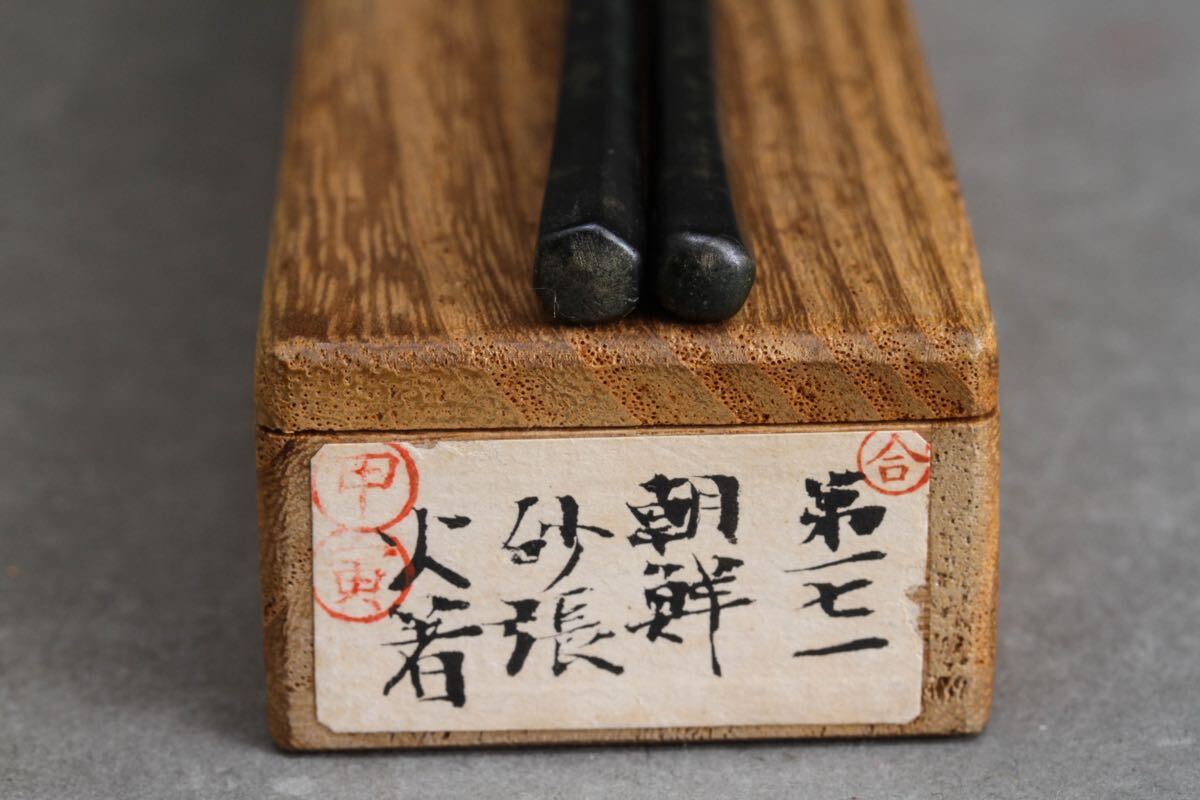 合
第一七一
朝鮮
砂張
火箸
甲
寅